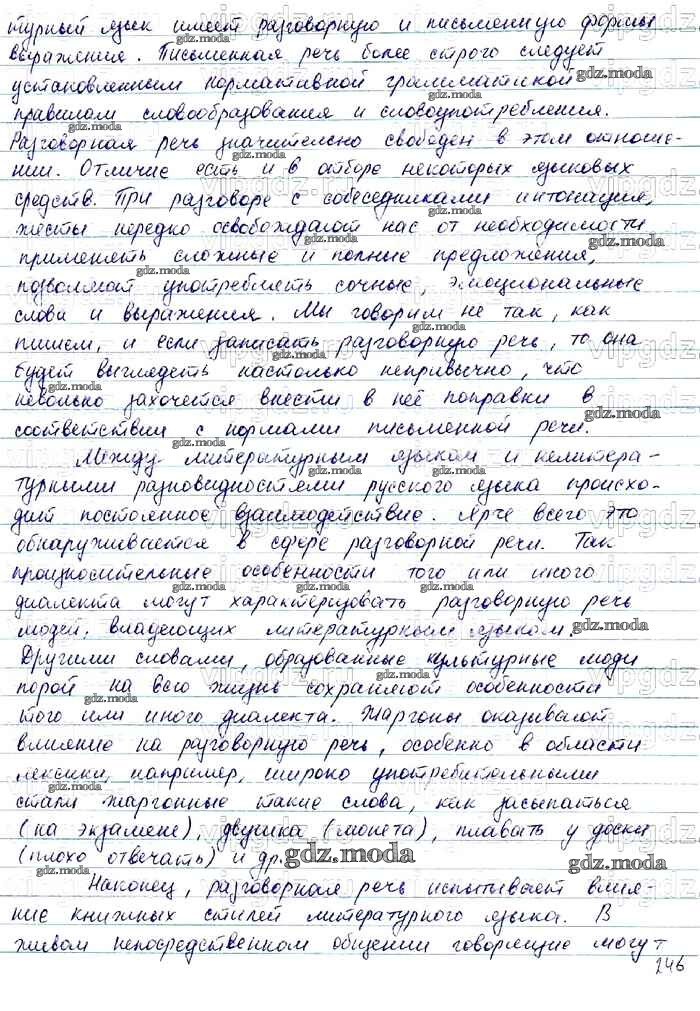 турный язык имеет разговорную и письменную формы
выражения. Письменная речь более строго следует
установленным нормативной грамматикой
правилам словообразования и словоупотребления.
Разговорная речь значительно свободен в этом отноше-
нии. Отличие есть и в отборе некоторых языковых
средств. При разговоре с собеседниками интонация,
жесты нередко освобождают нас от необходимости
применять сложные и полные предложения,
позволяют употреблять сочные, эмоциональные
слова и выражения. Мы говорим не так, как
пишем, и если записать разговорную речь, то она
будет выглядеть настолько непривычно, что
невольно захочется внести в неё поправки в
соответствии с нормами письменной речи.
Между литературным языком и нелитера-
турными разновидностями русского языка происхо-
дит постоянное взаимодействие. Ярче всего это
обнаруживается в сфере разговорной речи. Так
произносительные особенности того или иного
диалекта могут характеризовать разговорную речь
людей, владеющих литературным языком.
Другими словами, образованные культурные люди
порой на всю жизнь сохраняют особенности
того или иного диалекта. Жаргоны оказывают
влияние на разговорную речь, особенно в области
лексики, например, широко употребительными
стали жаргонные такие слова, как засыпаться
(на экзамене), двушка (монета), плавать у доски
(плохо отвечать) и др. gdz.moda
Наконец, разговорная речь испытывает влия-
ние книжных стилей литературного языка. В
живом непосредственном общении говорящие могут
246